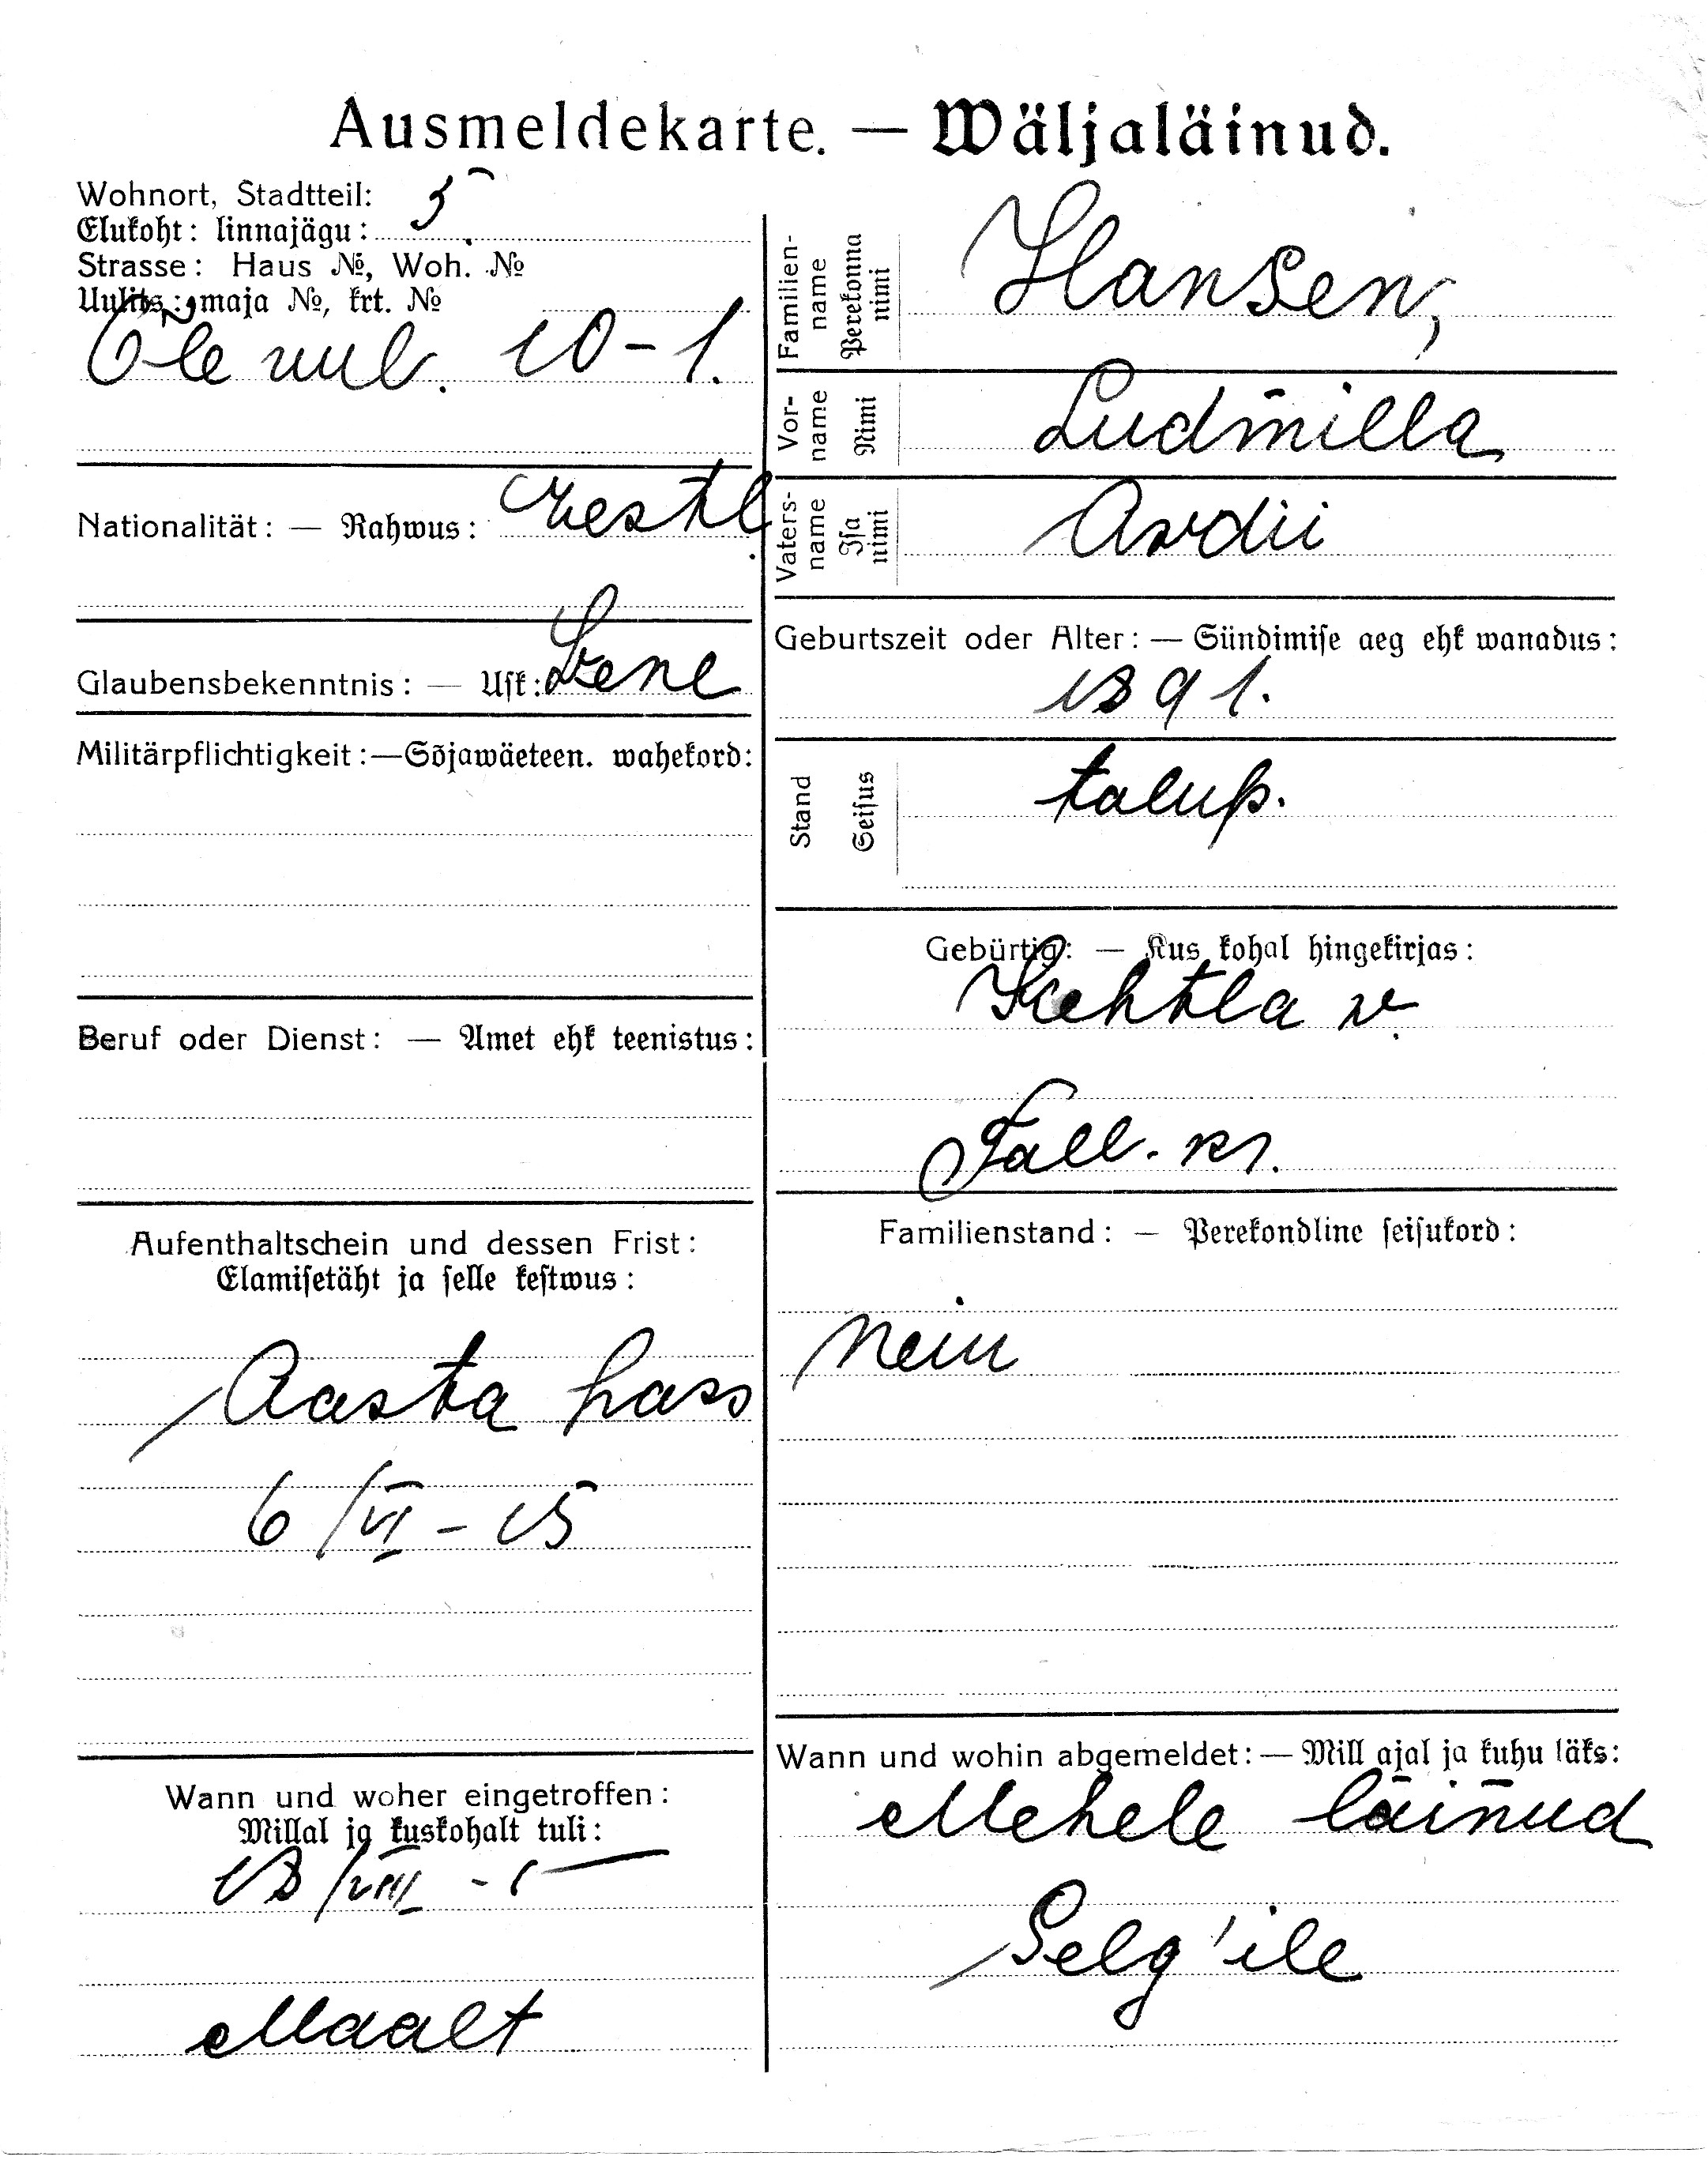 Ausmeldekarte. — Wäljaläinud.
Wohnort, Stadtteil:
Elukoht: linnajägu: 5
Strasse: Haus №, Woh. №
Uulits: maja №, krt. №
Õle uul. 10-1.
Nationalität: — Rahwus: Eestl.
Glaubensbekenntnis: — Usk: Wene
Militärpflichtigkeit:—Sõjawäeteen. wahekord:
Beruf oder Dienst: — Amet ehk teenistus:
Aufenthaltschein und dessen Frist:
Elamisetäht ja selle kestwus:
Aasta pass
6/VI - 15
Wann und woher eingetroffen:
Millal ja kuskohalt tuli:
18/VIII - 15
Maalt
Familien-
name
Perekonna
nimi
Hansen,
Vor-
name
Nimi
Ludmilla
Vaters-
name
Isa
nimi
Geburtszeit oder Alter: — Sündimise aeg ehk wanadus:
1891.
Stand
Seisus
talup.
Gebürtig: — Kus kohal hingekirjas:
Kehtla v.
Tall. kr.
Familienstand: — Perekondline seisukord:
Wann und wohin abgemeldet: — Mill ajal ja kuhu läks:
Mehele läinud
Selg'ile